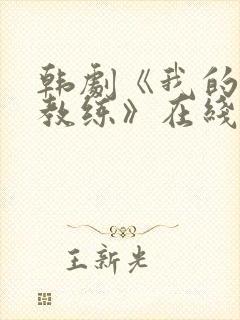 韩剧《我的
教练》在线
王新光